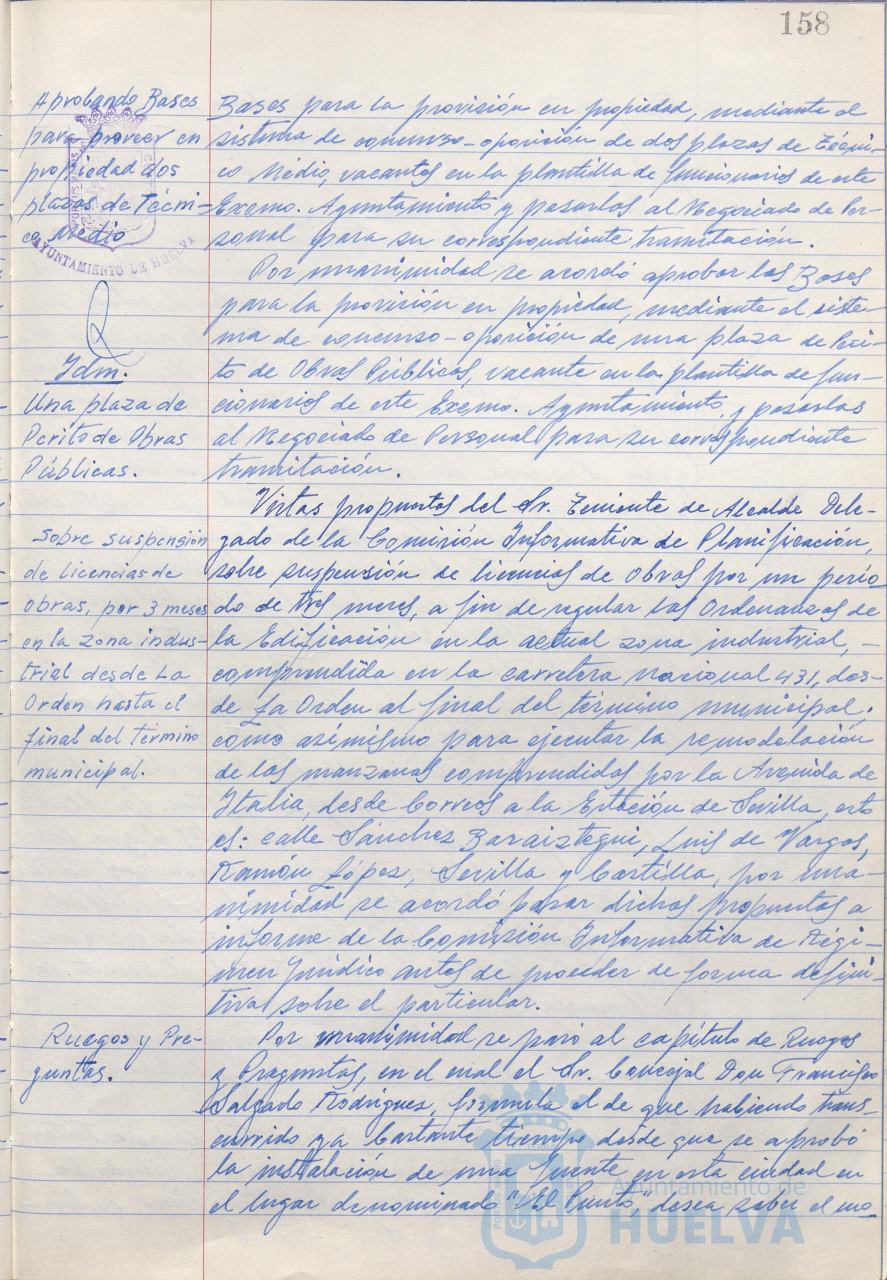 158
Aprobando Bases
para proveer en
propiedad dos
plazas de Técni-
co Medio
AYUNTAMIENTO DE HUELVA
Bases para la provisión en propiedad, mediante el
sistema de concurso-oposición de dos plazas de Técni-
co Médio, vacantes en la plantilla de funcionarios de este
Excmo. Ayuntamiento y pasarlas al Negociado de Per-
sonal para su correspondiente tramitación.
Idm.
Una plaza de
Perito de Obras
Públicas.
Por unanimidad se acordó aprobar las Bases
para la provisión en propiedad, mediante el siste-
ma de concurso-oposición de una plaza de Peri-
to de Obras Públicas, vacante en la plantilla de fun-
cionarios de este Excmo. Ayuntamiento, y pasarlas
al Negociado de Personal para su correspondiente
tramitación.
Sobre suspensión
de licencias de
obras, por 3 meses
en la zona indus-
trial desde La
Orden hasta el
final del término
municipal.
Vistas propuestas del Sr. Teniente de Alcalde Dele-
gado de la Comisión Informativa de Planificación,
sobre suspensión de licencias de Obras por un perío
do de tres meses, a fin de regular las Ordenanzas de
la Edificación en la actual zona industrial, -
comprendida en la carretera nacional 431, des-
de La Orden al final del término municipal.
como asimismo para ejecutar la remodelación
de las manzanas comprendidas por la Avenida de
Italia, desde Correos a la Estación de Sevilla, esto
es: calle Sánchez Baraiztegui, Luis de Vargas,
Ramón López, Sevilla y Castilla, por una-
nimidad se acordó pasar dichas propuestas a
informe de la Comisión Informativa de Régi-
men Jurídico antes de proceder de forma defini-
tiva sobre el particular.
Ruegos y Pre-
guntas.
Por unanimidad se pasó al capítulo de Ruegos
y Preguntas, en el cual el Sr. Concejal Don Francisco
Salgado Rodríguez, formula el de que habiendo trans-
currido ya bastante tiempo desde que se aprobó
la instalación de una fuente en esta ciudad en
el lugar denominado "El Punto," desea saber el mo
Ayuntamiento de
HUELVA